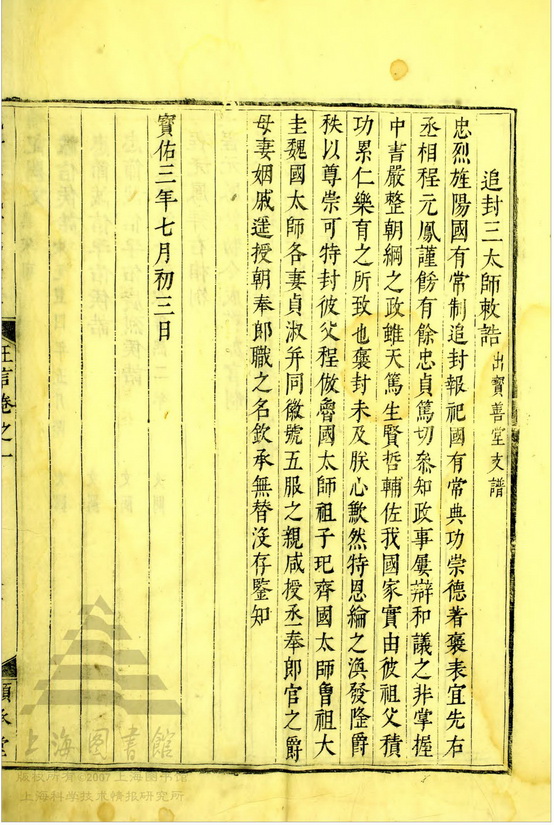 追封三太師敕誥 出寶善堂支譜
忠烈旌陽國有常制追封報祀國有常典功崇德著褒表宜先右
丞相程元鳳謹飭有餘忠貞篤切叅知政事屢辯和議之非掌握
中書嚴整朝綱之政雖天篤生賢哲輔佐我國家實由彼祖父積
功累仁樂育之所致也褒封未及朕心歉然特恩綸之渙發隆爵
秩以尊崇可特封彼父程倣魯國太師祖子玘齊國太師魯祖大
圭魏國太師各妻貞淑并同徽號五服之親咸授丞奉郎官之爵
母妻姻戚遥授朝奉郎職之名欽承無替沒存鑒知
寶佑三年七月初三日
言卷之一
上海图书馆
版权所有 2007 上海图书馆
上海科学技术情报研究所